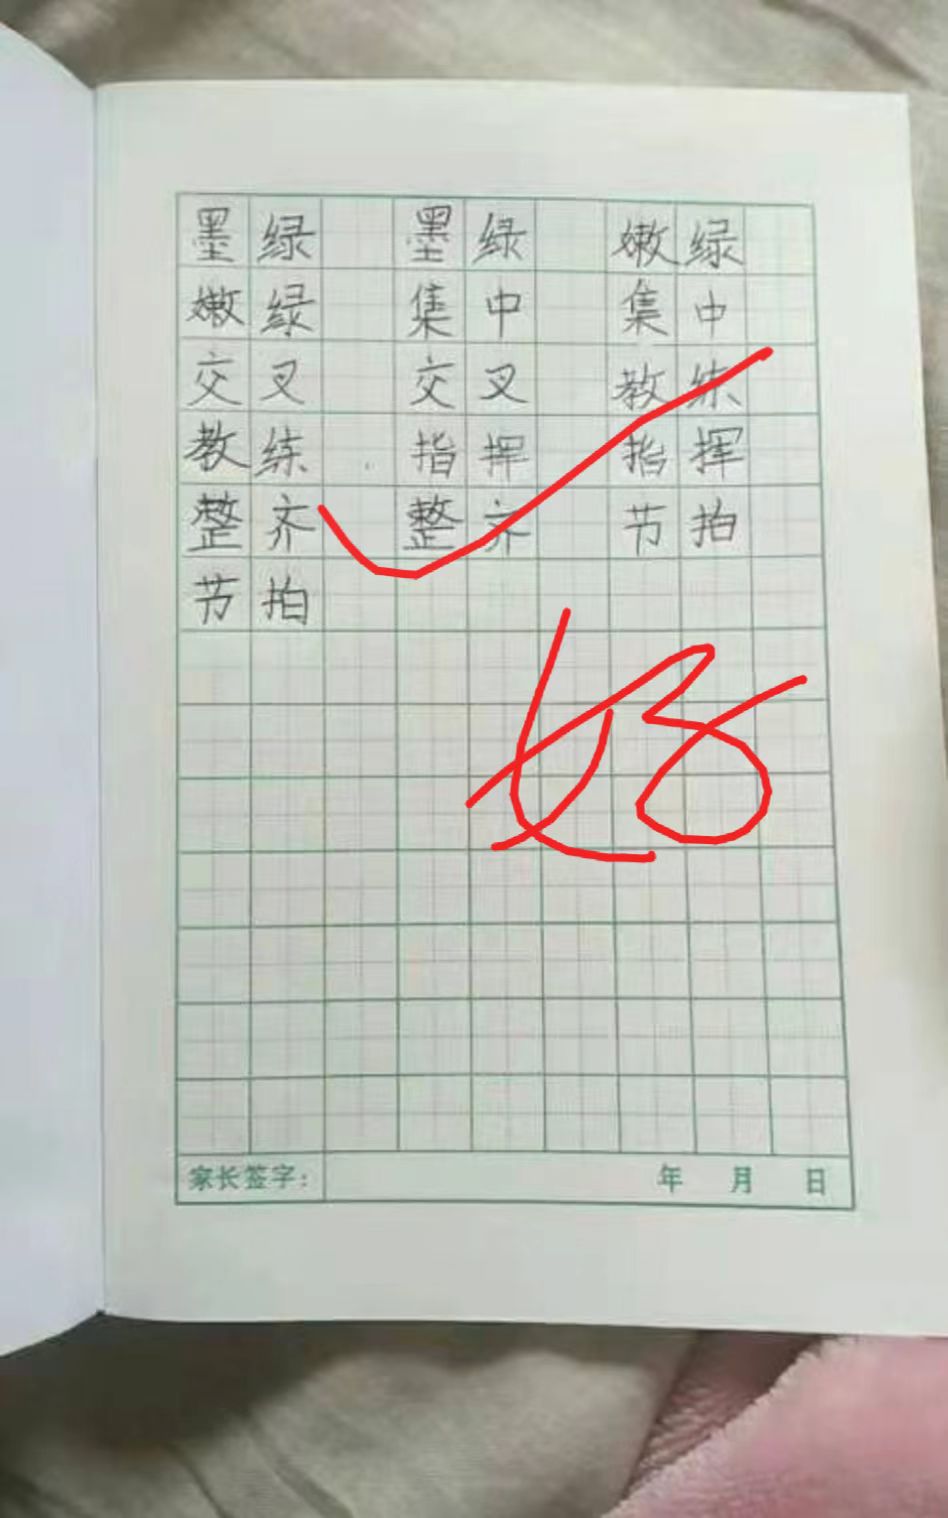 墨绿 墨绿 嫩绿
嫩绿 集中 集中
交叉 交叉 教练
教练 指挥 指挥
整齐 整齐 节拍
节拍
好
家长签字： 年 月 日